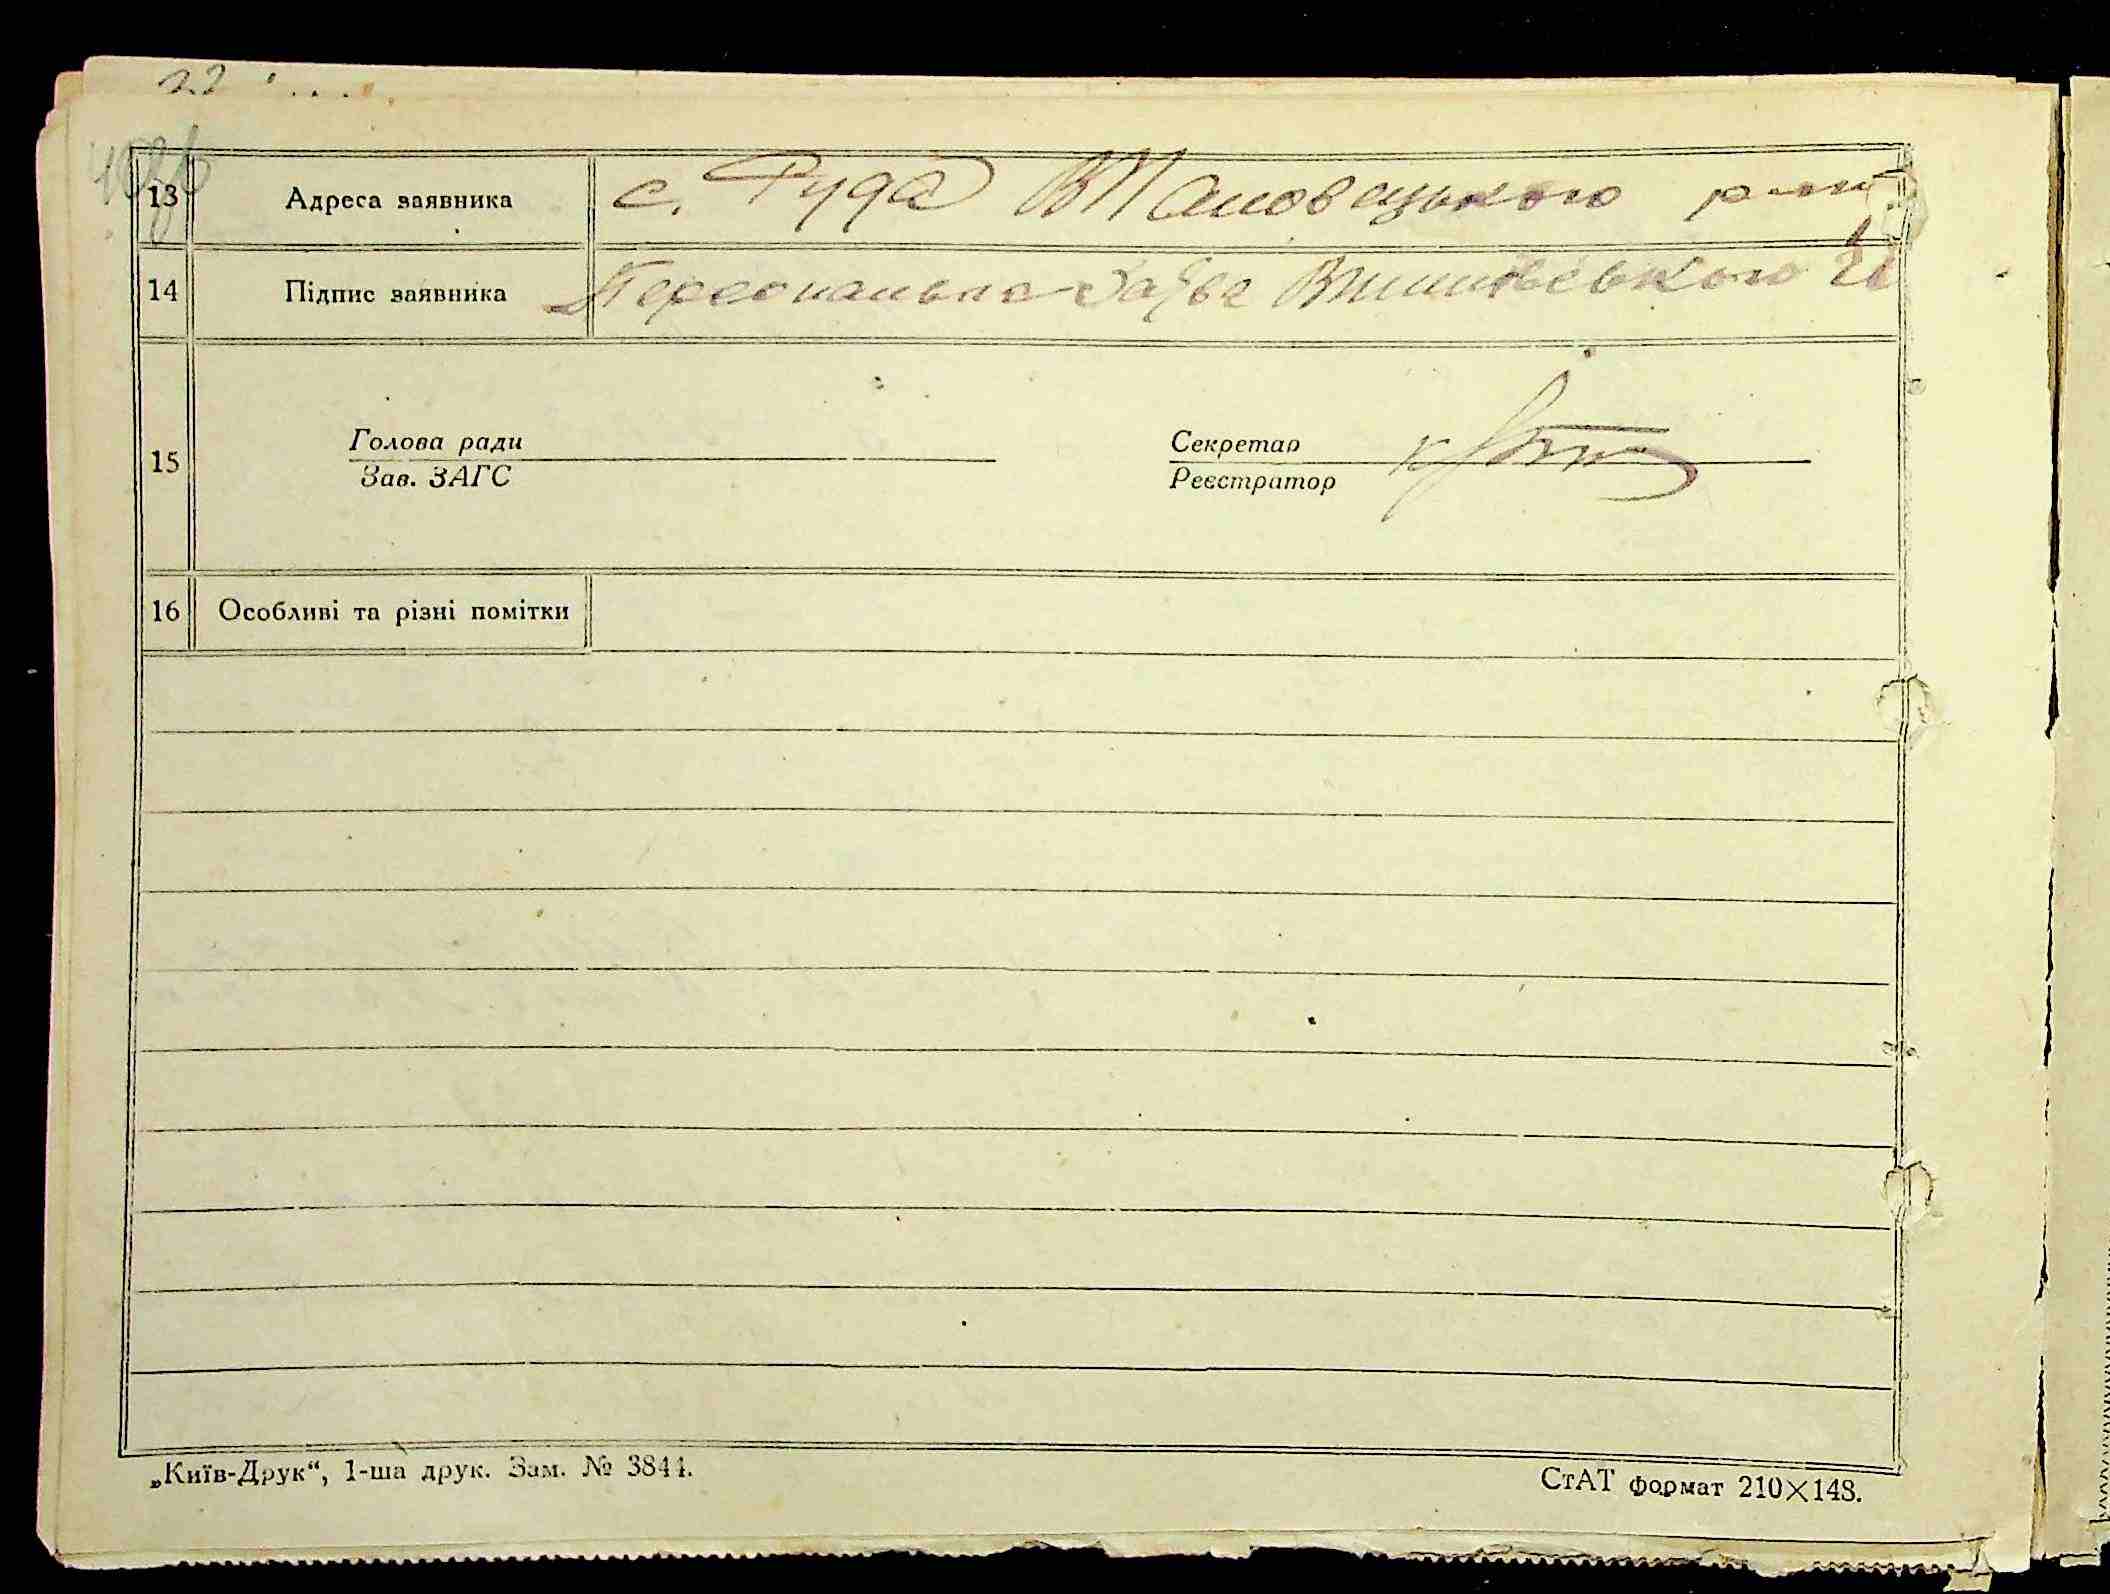 13 Адреса заявника с. Руда
14 Підпис заявника Персональна заява Вишневського
Голова ради Секретар
15
Зав. ЗАГС Реєстратор
16 Особливі та різні помітки
„Київ-Друк“, 1-ша друк. Зам. № 3844. СтАТ формат 210×148.